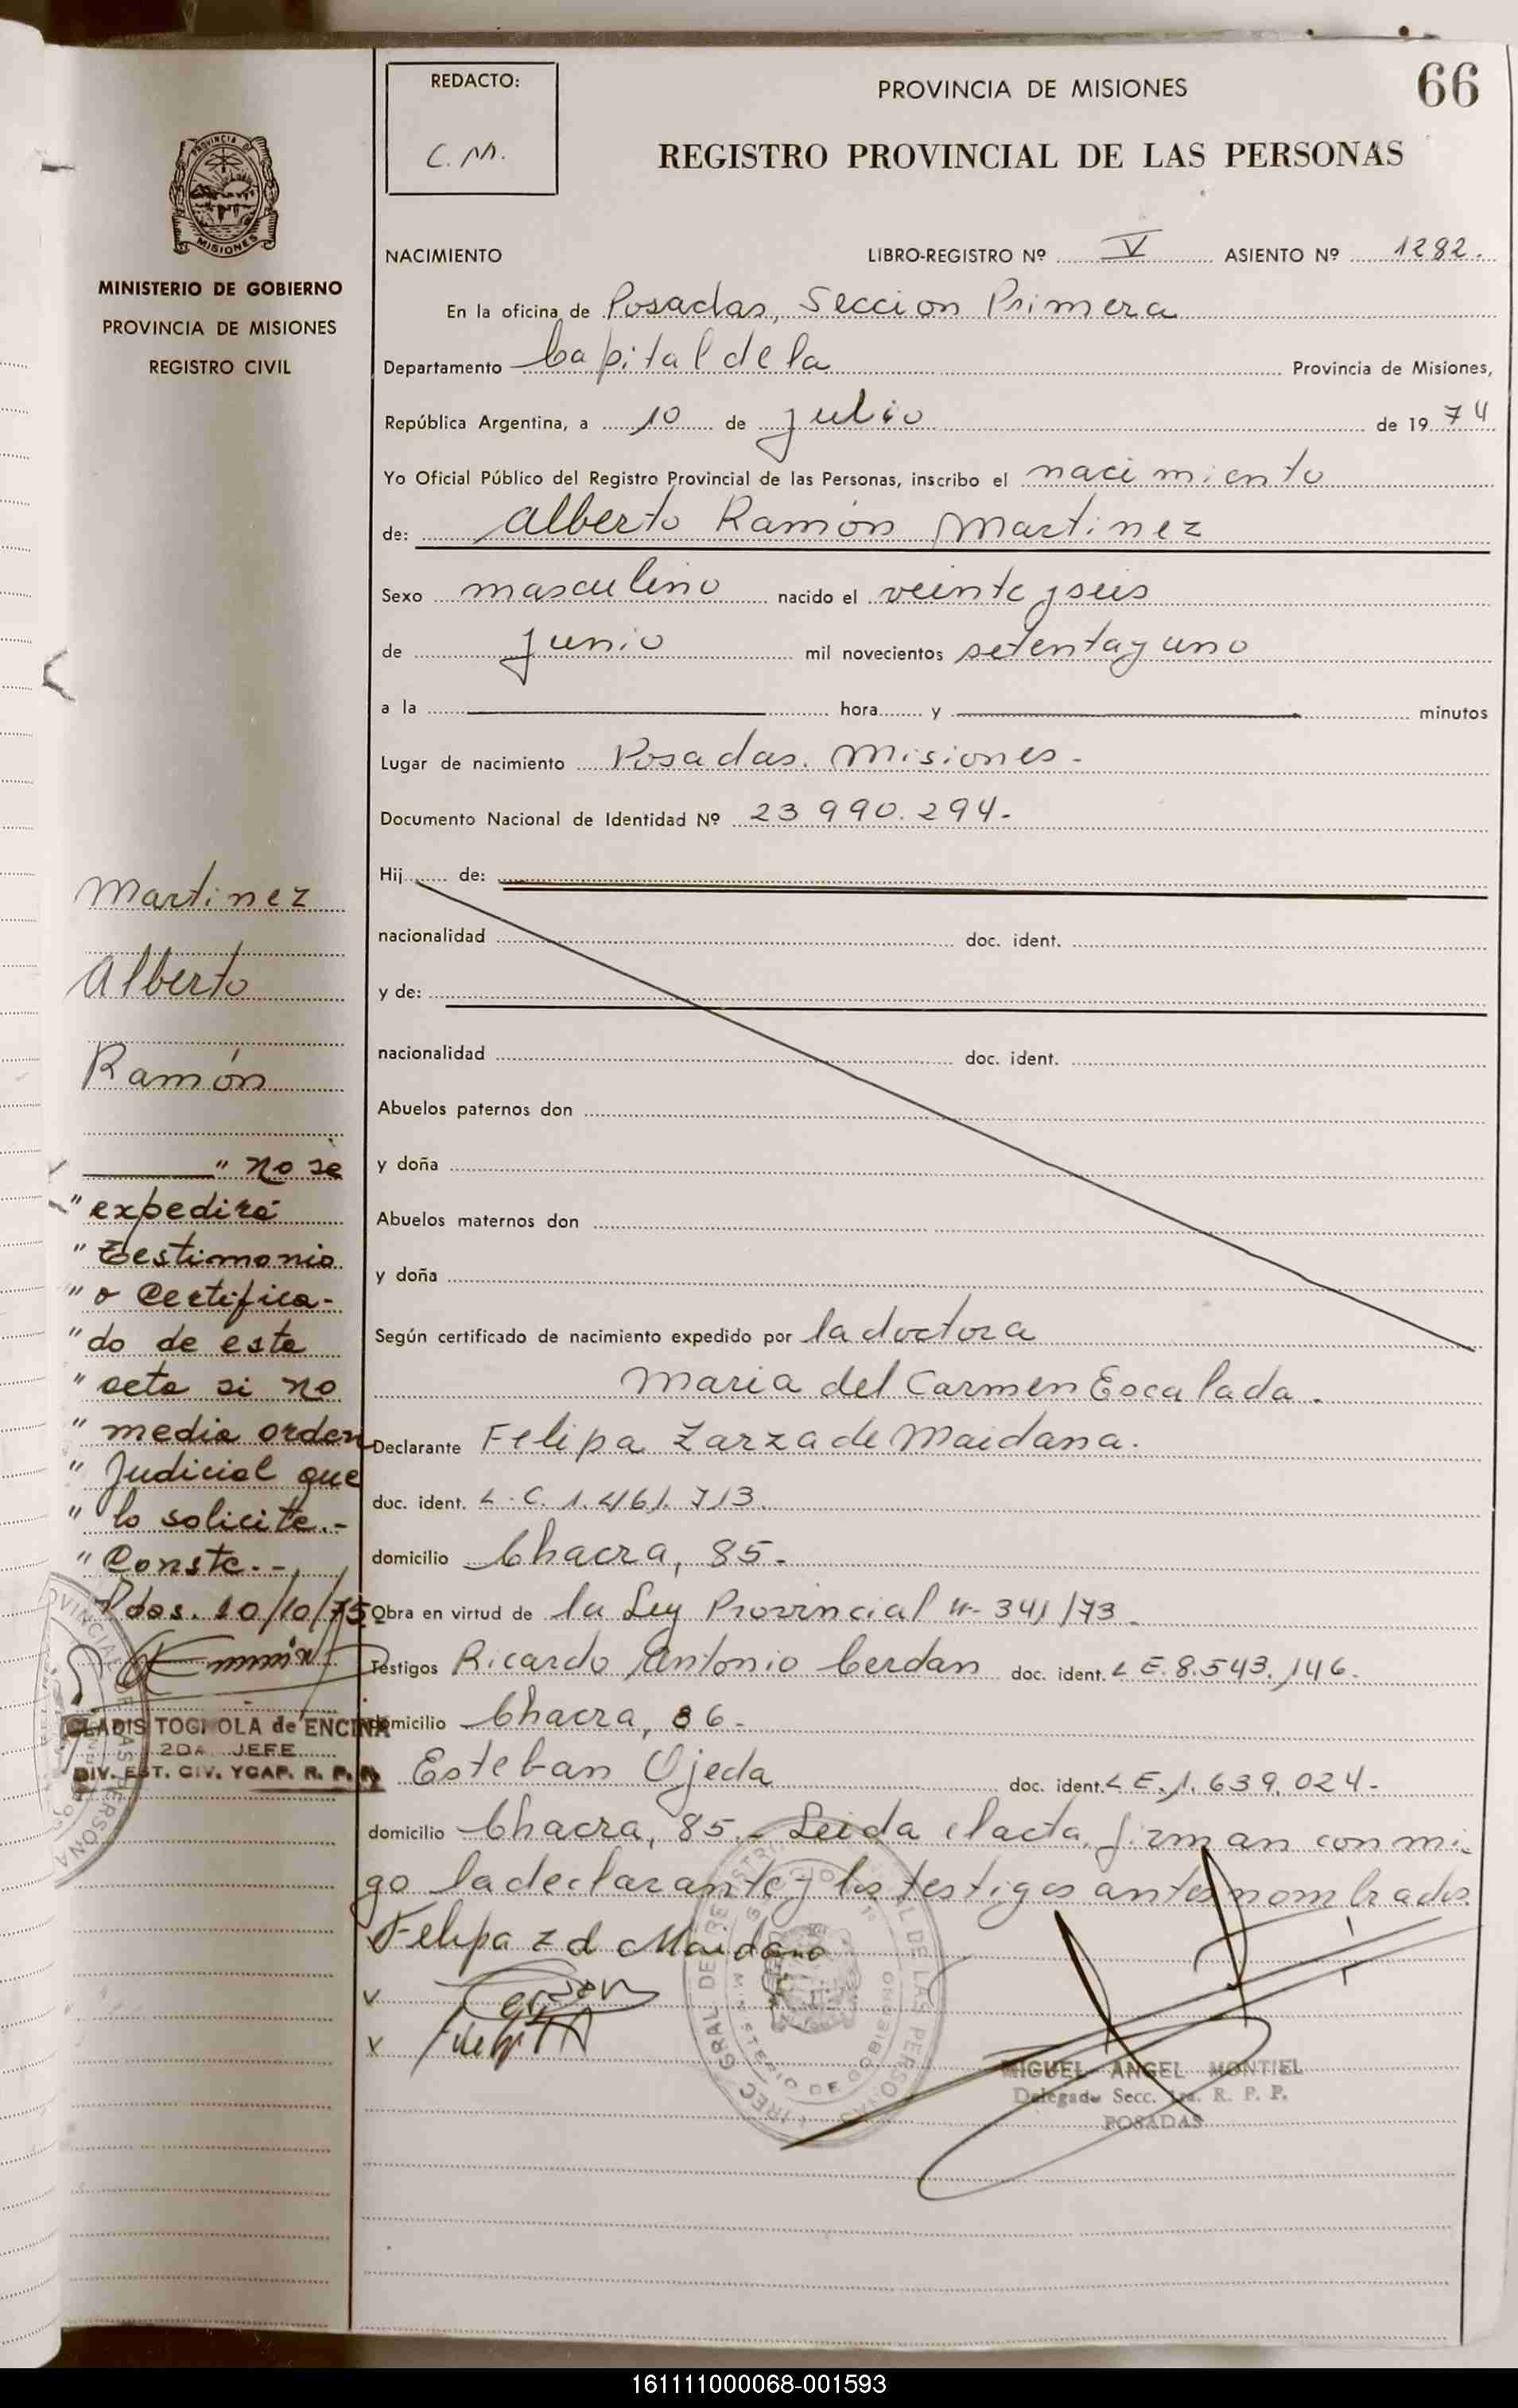 66
REDACTO:
C. M.
PROVINCIA DE MISIONES
REGISTRO PROVINCIAL DE LAS PERSONAS
PROVINCIA D
MISIONES
MINISTERIO DE GOBIERNO
PROVINCIA DE MISIONES
REGISTRO CIVIL
NACIMIENTO LIBRO-REGISTRO Nº V ASIENTO Nº 1282.
En la oficina de Posadas, Seccion Primera
Departamento Capital de la Provincia de Misiones,
República Argentina, a 10 de julio de 19 74
Yo Oficial Público del Registro Provincial de las Personas, inscribo el nacimiento
de: Alberto Ramón Martinez
Sexo masculino nacido el veinte y seis
de junio mil novecientos setenta y uno
a la hora y minutos
Lugar de nacimiento Posadas. Misiones -
Documento Nacional de Identidad Nº 23 990.294-
Hij de:
nacionalidad doc. ident.
y de:
nacionalidad doc. ident.
Abuelos paternos don
y doña
Abuelos maternos don
y doña
Según certificado de nacimiento expedido por la doctora
Maria del Carmen Escalada.
Declarante Felipa Zarza de Maidana.
doc. ident. L. C. 1.461.713.
domicilio Chacra, 85-
Obra en virtud de la Ley Provincial n- 341/73-
Testigos Ricardo Antonio Cerdan doc. ident. L E. 8.543.146.
domicilio Chacra, 86-
Esteban Ojeda doc. ident. L E. 1.639.024-
domicilio Chacra, 85.- Leida el acta, firman conmi-
go la declarante y los testigos antes nombrados.
Felipa z d Maidana
MIGUEL ANGEL MONTIEL
Delegado Secc. 1ra. R. P. P.
POSADAS
Martinez
Alberto
Ramón
" No se
" expedirá
" Testimonio
" o Certifica-
" do de esta
" acta si no
" media orden
" Judicial que
" lo solicite.-
" Conste.-
Pdas. 10/10/75
GLADIS TOGNOLA de ENCINA
2DA. JEFE
DIV. EST. CIV. Y CAP. R. P. P.
161111000068-001593